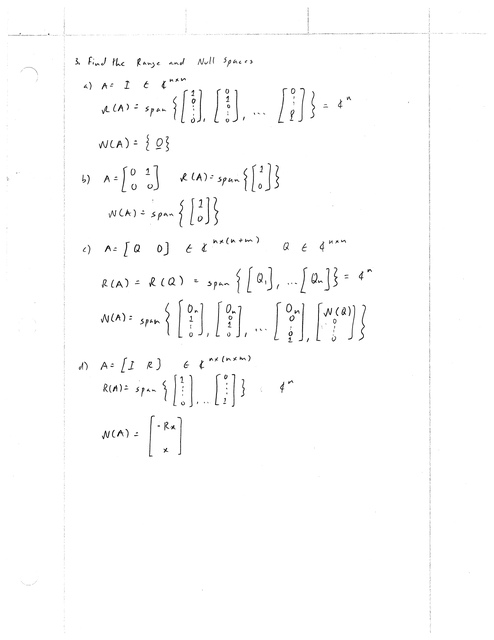 3. Find the Range and Null spaces
a) A = I ∈ ₵^{n×n}
R(A) = span { [1 0 ⋮ 0], [0 1 0 ⋮ 0], ... [0 ⋮ 0 1] } = ₵^n
N(A) = { 0 }
b) A = [0 1; 0 0] R(A) = span { [1 0] }
N(A) = span { [1 0] }
c) A = [Q 0] ∈ ₵^{n×(n+m)} Q ∈ ₵^{n×n}
R(A) = R(Q) = span { [Q₁], ... [Qₙ] } = ₵^n
N(A) = span { [0ₙ 1 ⋮ 0], [0ₙ 0 1 ⋮ 0], ... [0ₙ 0 ⋮ 0 1], [N(Q) 0 ⋮ 0] }
d) A = [I R] ∈ ₵^{n×(n×m)}
R(A) = span { [1 ⋮ 0], ... [0 ⋮ 1] } ₵^n
N(A) = [-Rx x]